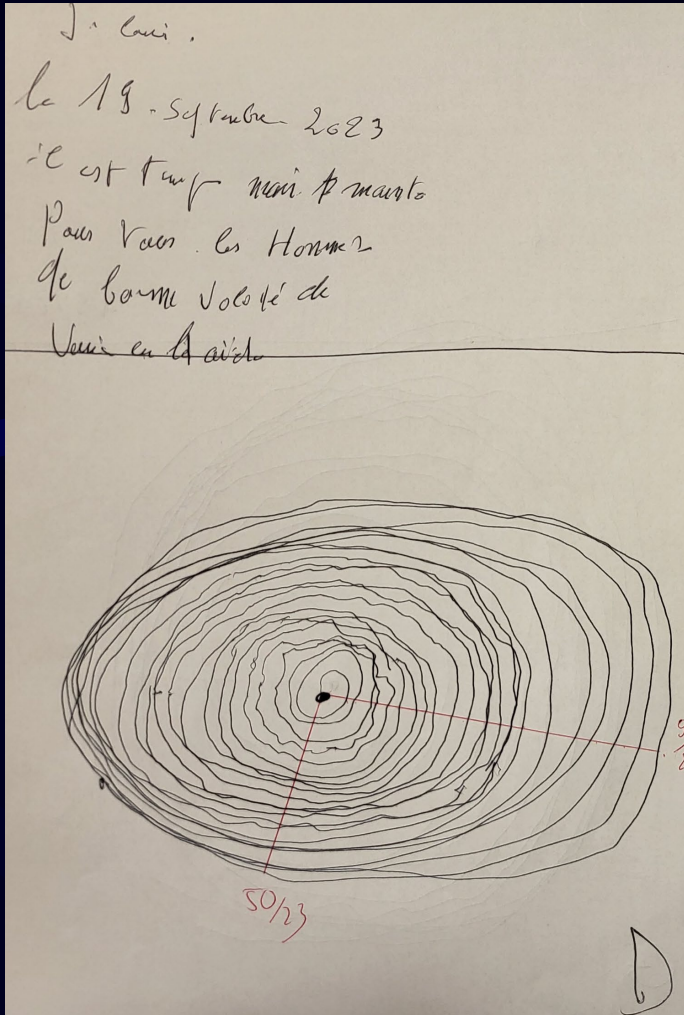 le 19. Septembre 2023
il est temps mais maint.
Pour tous les Hommes
de bonne volonté de
Venir en aide
50/23
D